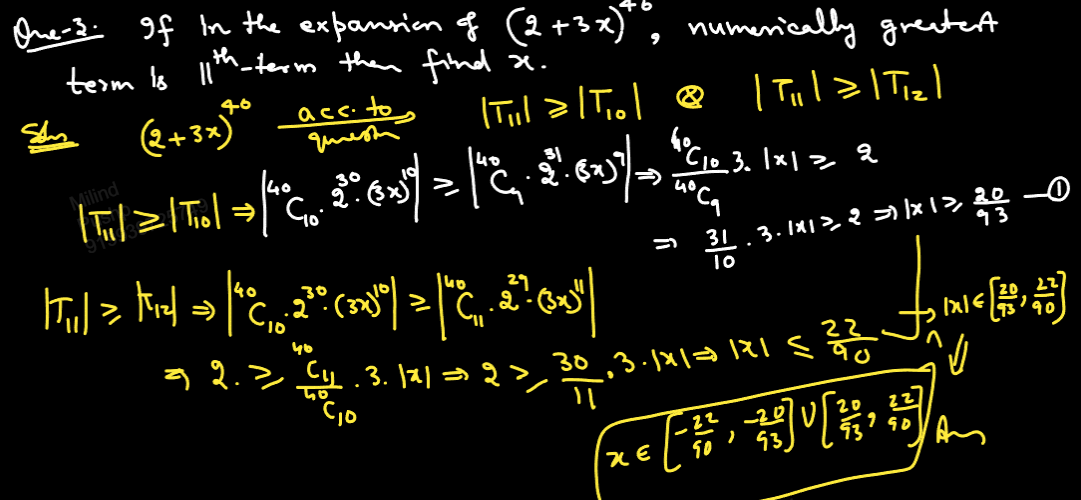 Que-3: If In the expansion of (2+3x)^40, numerically greatest
term is 11th-term then find x.
Soln (2+3x)^40 acc. to question |T11| ≥ |T10| & |T11| ≥ |T12|
|T11| ≥ |T10| ⇒ |40C10 · 2^30 · (3x)^10| ≥ |40C9 · 2^31 · (3x)^9| ⇒ 40C10/40C9 3. |x| ≥ 2
⇒ 31/10 . 3 . |x| ≥ 2 ⇒ |x| ≥ 20/93 —①
Milind
|T11| ≥ |T12| ⇒ |40C10 · 2^30 · (3x)^10| ≥ |40C11 · 2^29 · (3x)^11|
→ |x| ∈ [20/93, 22/90]
⇒ 2 . ≥ 40C11/40C10 . 3 . |x| ⇒ 2 ≥ 30/11 . 3 . |x| ⇒ |x| ≤ 22/90
x ∈ [-22/90, -20/93] ∪ [20/93, 22/90] Ans